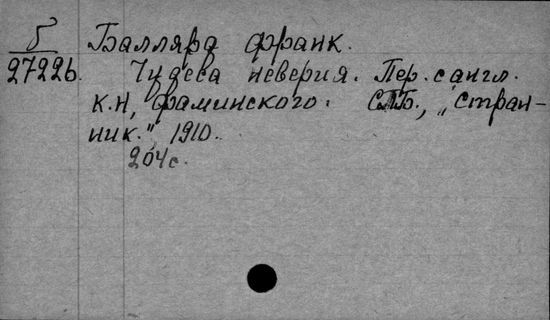 Б
27226.
Баллярд Франк.
Чудеса неверия. Пер. с англ.
К.Н, Фаминского. СПБ., „Стран-
ник." 1910.
204 с.